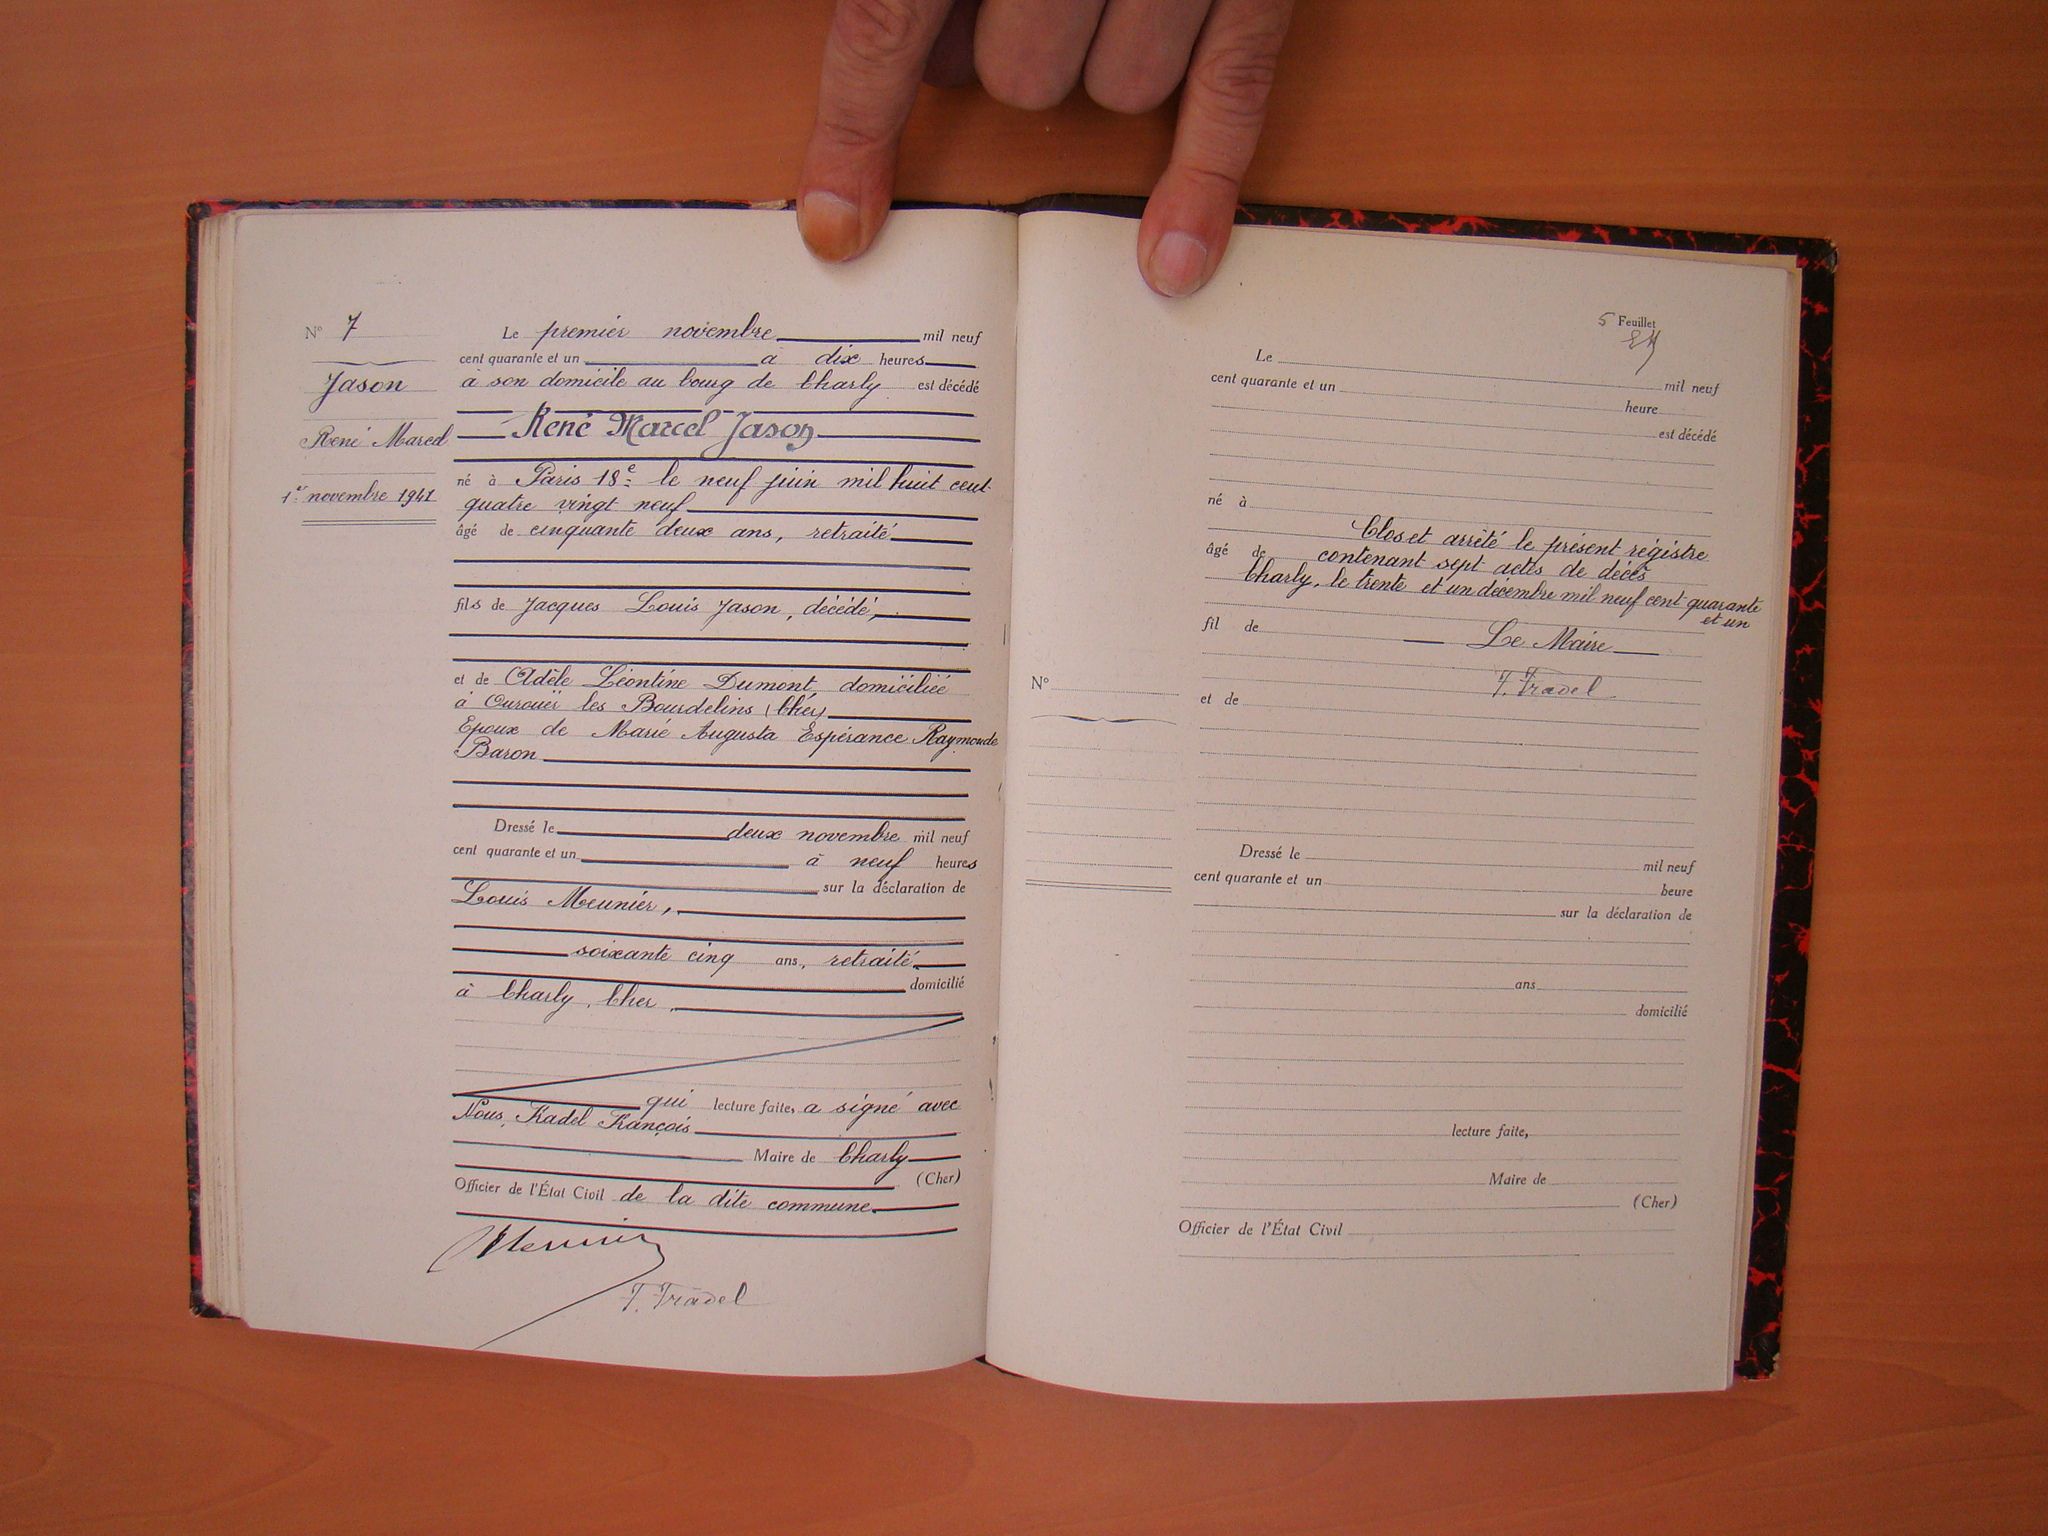 N° 7
Jason
René Marcel
1er novembre 1941
Le premier novembre mil neuf
cent quarante et un à dix heures
à son domicile au bourg de Charly est décédé
René Marcel Jason
né à Paris 18e le neuf juin mil huit cent
quatre vingt neuf
âgé de cinquante deux ans, retraité
fils de Jacques Louis Jason, décédé,
et de Adèle Léontine Dumont, domiciliée
à Ourouër les Bourdelins (Cher)
Epoux de Marie Augusta Espérance Raymonde
Baron
Dressé le deux novembre mil neuf
cent quarante et un à neuf heures
sur la déclaration de
Louis Meunier,
soixante cinq ans, retraité,
domicilié
à Charly, Cher,
qui lecture faite, a signé avec
Nous, François
Maire de Charly
(Cher)
Officier de l'État Civil de la dite commune.
Meunier
F. Fradel
5 Feuillet
Le
mil neuf
cent quarante et un
heure
est décédé
né à
Clos et arrêté le présent régistre
âgé de contenant sept actes de décès
Charly, le trente et un décembre mil neuf cent quarante
et un
fil de
Le Maire
F. Fradel
N°
et de
Dressé le
mil neuf
cent quarante et un
heure
sur la déclaration de
ans
domicilié
lecture faite,
Maire de
(Cher)
Officier de l'État Civil